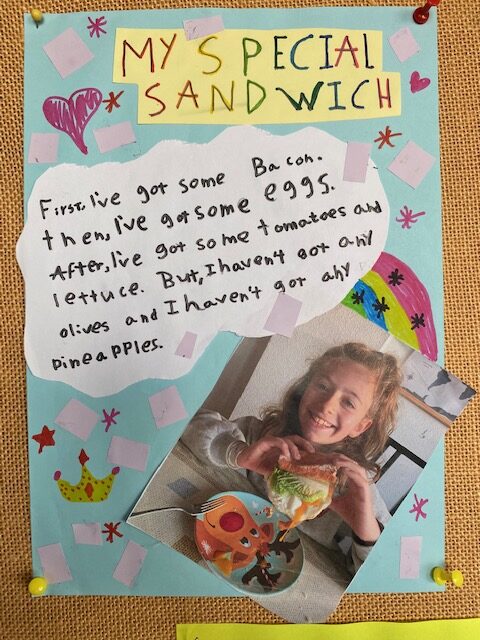 MY SPECIAL
SANDWICH
First, I've got some Bacon.
then, I've got some eggs.
After, I've got some tomatoes and
lettuce. But, I haven't got any
olives and I haven't got any
pineapples.